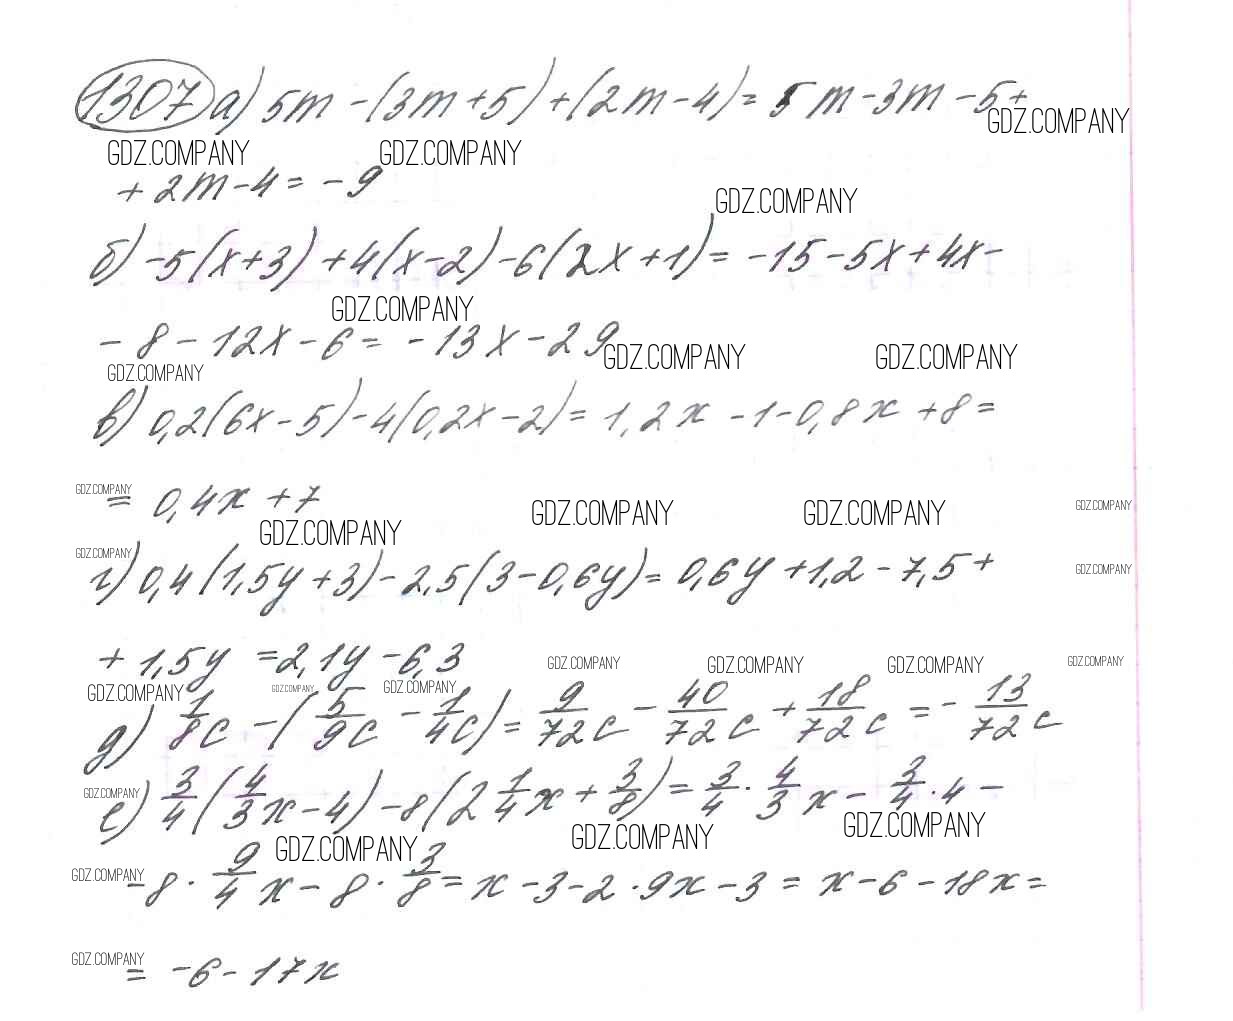 1307 а) 5m - (3m + 5) + (2m - 4) = 5m - 3m - 5 +
GDZ.COMPANY
GDZ.COMPANY GDZ.COMPANY
+ 2m - 4 = -9
GDZ.COMPANY
б) -5(x + 3) + 4(x - 2) - 6(2x + 1) = -15 - 5x + 4x -
GDZ.COMPANY
- 8 - 12x - 6 = -13x - 29
GDZ.COMPANY GDZ.COMPANY
GDZ.COMPANY
в) 0,2(6x - 5) - 4(0,2x - 2) = 1,2x - 1 - 0,8x + 8 =
GDZ.COMPANY
= 0,4x + 7
GDZ.COMPANY GDZ.COMPANY GDZ.COMPANY
GDZ.COMPANY
GDZ.COMPANY
г) 0,4(1,5y + 3) - 2,5(3 - 0,6y) = 0,6y + 1,2 - 7,5 +
GDZ.COMPANY
+ 1,5y = 2,1y - 6,3
GDZ.COMPANY GDZ.COMPANY GDZ.COMPANY GDZ.COMPANY
GDZ.COMPANY GDZ.COMPANY GDZ.COMPANY
д) 1/8 c - (5/9 c - 1/4 c) = 9/72 c - 40/72 c + 18/72 c = - 13/72 c
GDZ.COMPANY
е) 3/4 (4/3 x - 4) - 8(2 1/4 x + 3/8) = 3/4 · 4/3 x - 3/4 · 4 -
GDZ.COMPANY GDZ.COMPANY GDZ.COMPANY
GDZ.COMPANY
- 8 · 9/4 x - 8 · 3/8 = x - 3 - 2 · 9x - 3 = x - 6 - 18x =
GDZ.COMPANY
= -6 - 17x